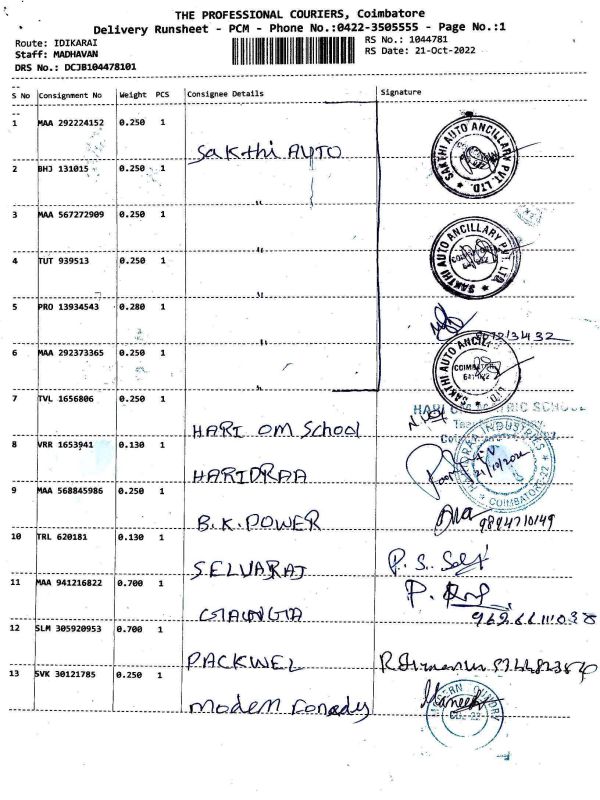 THE PROFESSIONAL COURIERS, Coimbatore
Delivery Runsheet - PCM - Phone No.:0422-3505555 - Page No.:1
Route: IDIKARAI
RS No.: 1044781
Staff: MADHAVAN
RS Date: 21-Oct-2022
DRS No.: DCJB104478101
S No Consignment No Weight PCS Consignee Details Signature
1 MAA 292224152 0.250 1
Sakthi AUTO
SAKTHI AUTO ANCILLARY PVT. LTD.
2 BHJ 131015 0.250 1
"
3 MAA 567272909 0.250 1
"
SAKTHI AUTO ANCILLARY PVT. LTD.
4 TUT 939513 0.250 1
"
5 PRO 13934543 0.280 1
"
6 MAA 292373365 0.250 1
"
SAKTHI AUTO ANCILLARY LTD.
7 TVL 1656806 0.250 1
HARI OM School
HARI SCHOOL
8 VRR 1653941 0.130 1
HARIDRAA
INDUSTRIES
21/10/2022
COIMBATORE-22
9 MAA 568845986 0.250 1
B.K. POWER
9894710149
10 TRL 620181 0.130 1
SELVARAJ
P. S.
11 MAA 941216822 0.700 1
P.
12 SLM 305920953 0.700 1
PACKWEL
13 SVK 30121785 0.250 1
Modern